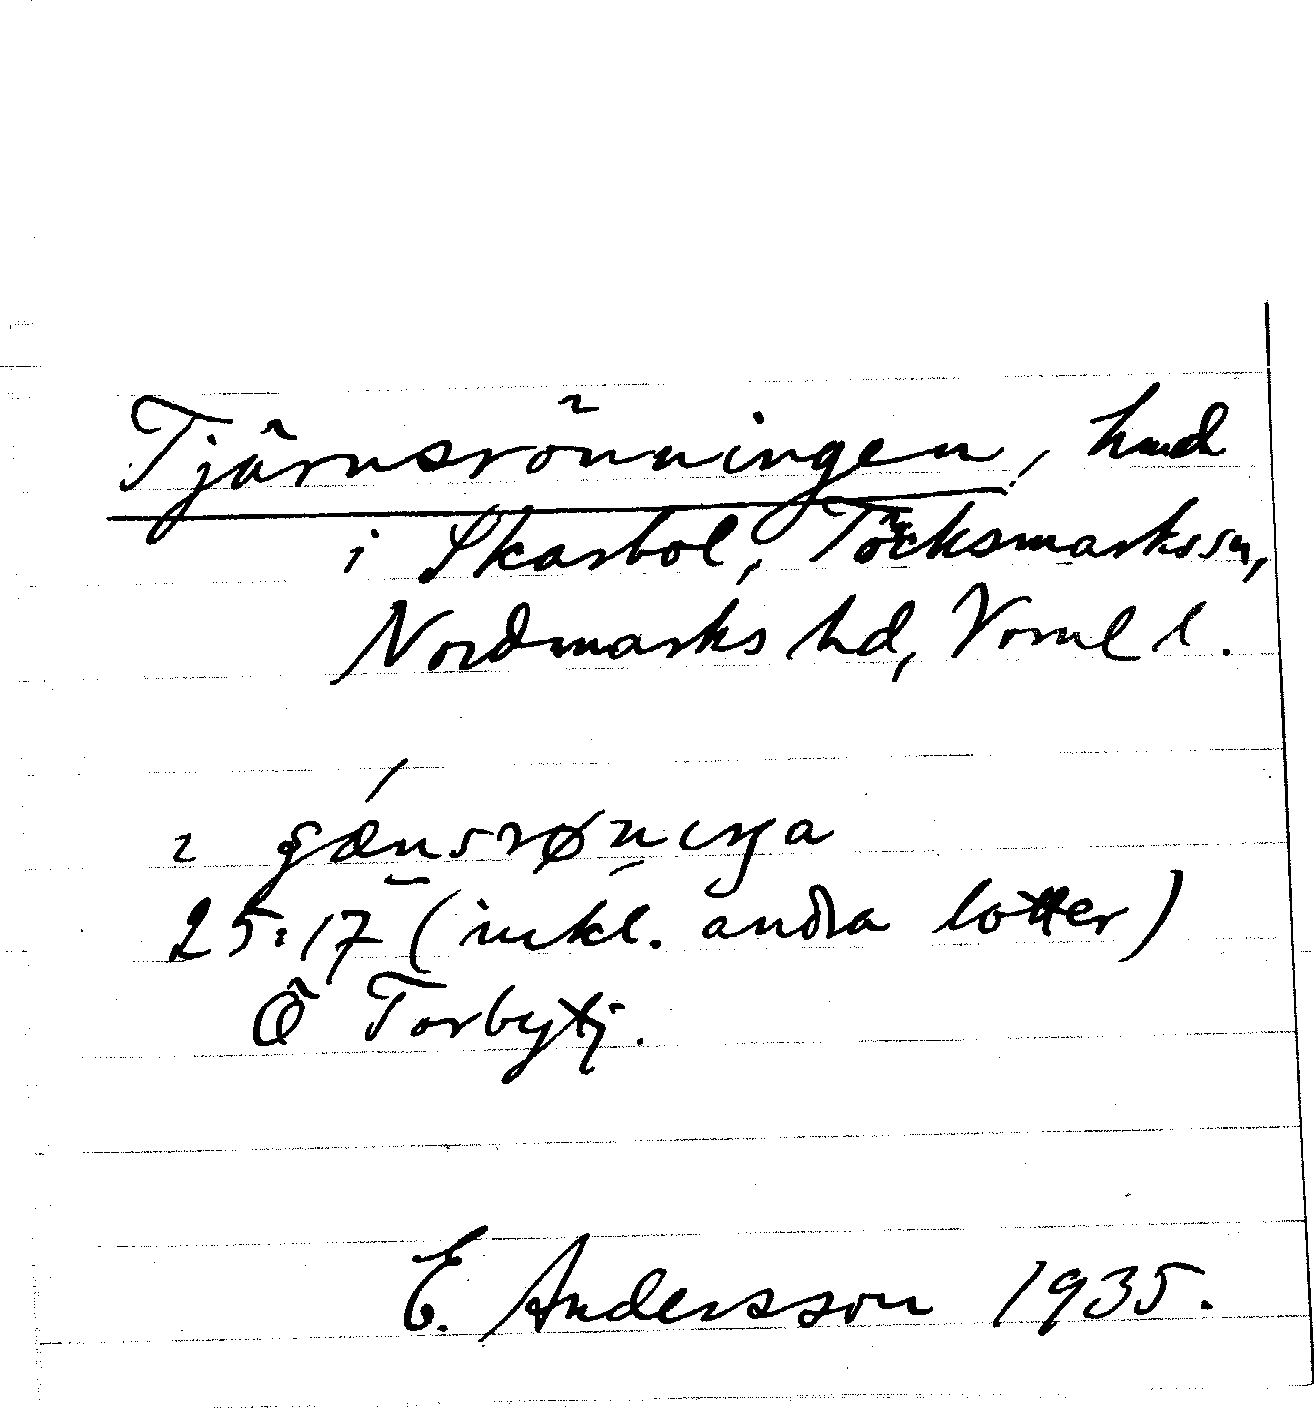 Tjärnsrönningen, hmd
i Skarbol, Töcksmarks sn,
Nordmarks hd, Verml l.
25:17 (inkl. andra lotter)
Ö Torbytj.
E. Andersson 1935.